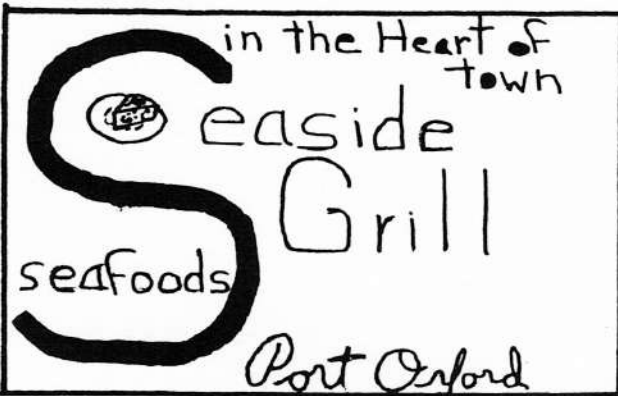 in the Heart of
town
Seaside
Grill
seafoods
Port Orford